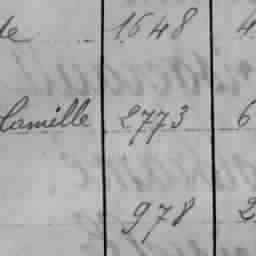 de 1648 4
Camille 2773 6
978 2